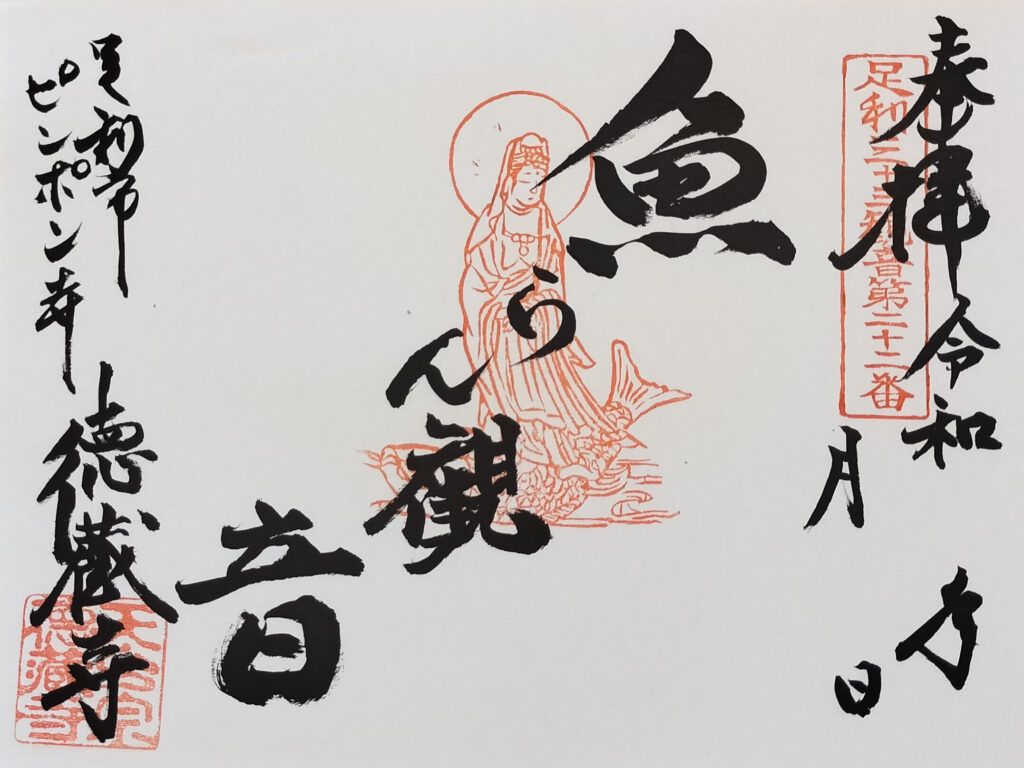 奉拝 令和 年
月 日
足利三十三観音第二十二番
魚らん観音
足利市
ピンポン寺
徳蔵寺
徳蔵寺